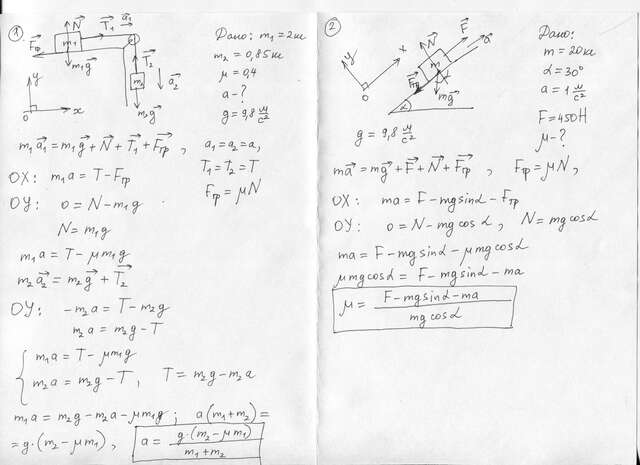 1.
N⃗ T⃗₁ a⃗₁
m₁
F⃗тр
m₁g⃗
T⃗₂
m₂
a⃗₂
m₂g⃗
y
0 x
Дано: m₁ = 2 кг
m₂ = 0,85 кг
μ = 0,4
a - ?
g = 9,8 м/с²
m₁a⃗₁ = m₁g⃗ + N⃗ + T⃗₁ + F⃗тр , a₁ = a₂ = a,
T₁ = T₂ = T
Fтр = μN
OX: m₁a = T - Fтр
OY: 0 = N - m₁g
N = m₁g
m₁a = T - μm₁g
m₂a⃗₂ = m₂g⃗ + T⃗₂
OY: -m₂a = T - m₂g
m₂a = m₂g - T
{ m₁a = T - μm₁g
m₂a = m₂g - T , T = m₂g - m₂a
m₁a = m₂g - m₂a - μm₁g ; a(m₁ + m₂) =
= g·(m₂ - μm₁) , a = g·(m₂ - μm₁) / (m₁ + m₂)
2
y x
0
N⃗ F⃗ a⃗
m
F⃗тр
α
mg⃗
α
g = 9,8 м/с²
Дано:
m = 20 кг
α = 30°
a = 1 м/с²
F = 450 Н
μ - ?
ma⃗ = mg⃗ + F⃗ + N⃗ + F⃗тр , Fтр = μN,
OX: ma = F - mg sinα - Fтр
OY: 0 = N - mg cosα , N = mg cosα
ma = F - mg sinα - μmg cosα
μmg cosα = F - mg sinα - ma
μ = (F - mg sinα - ma) / (mg cosα)